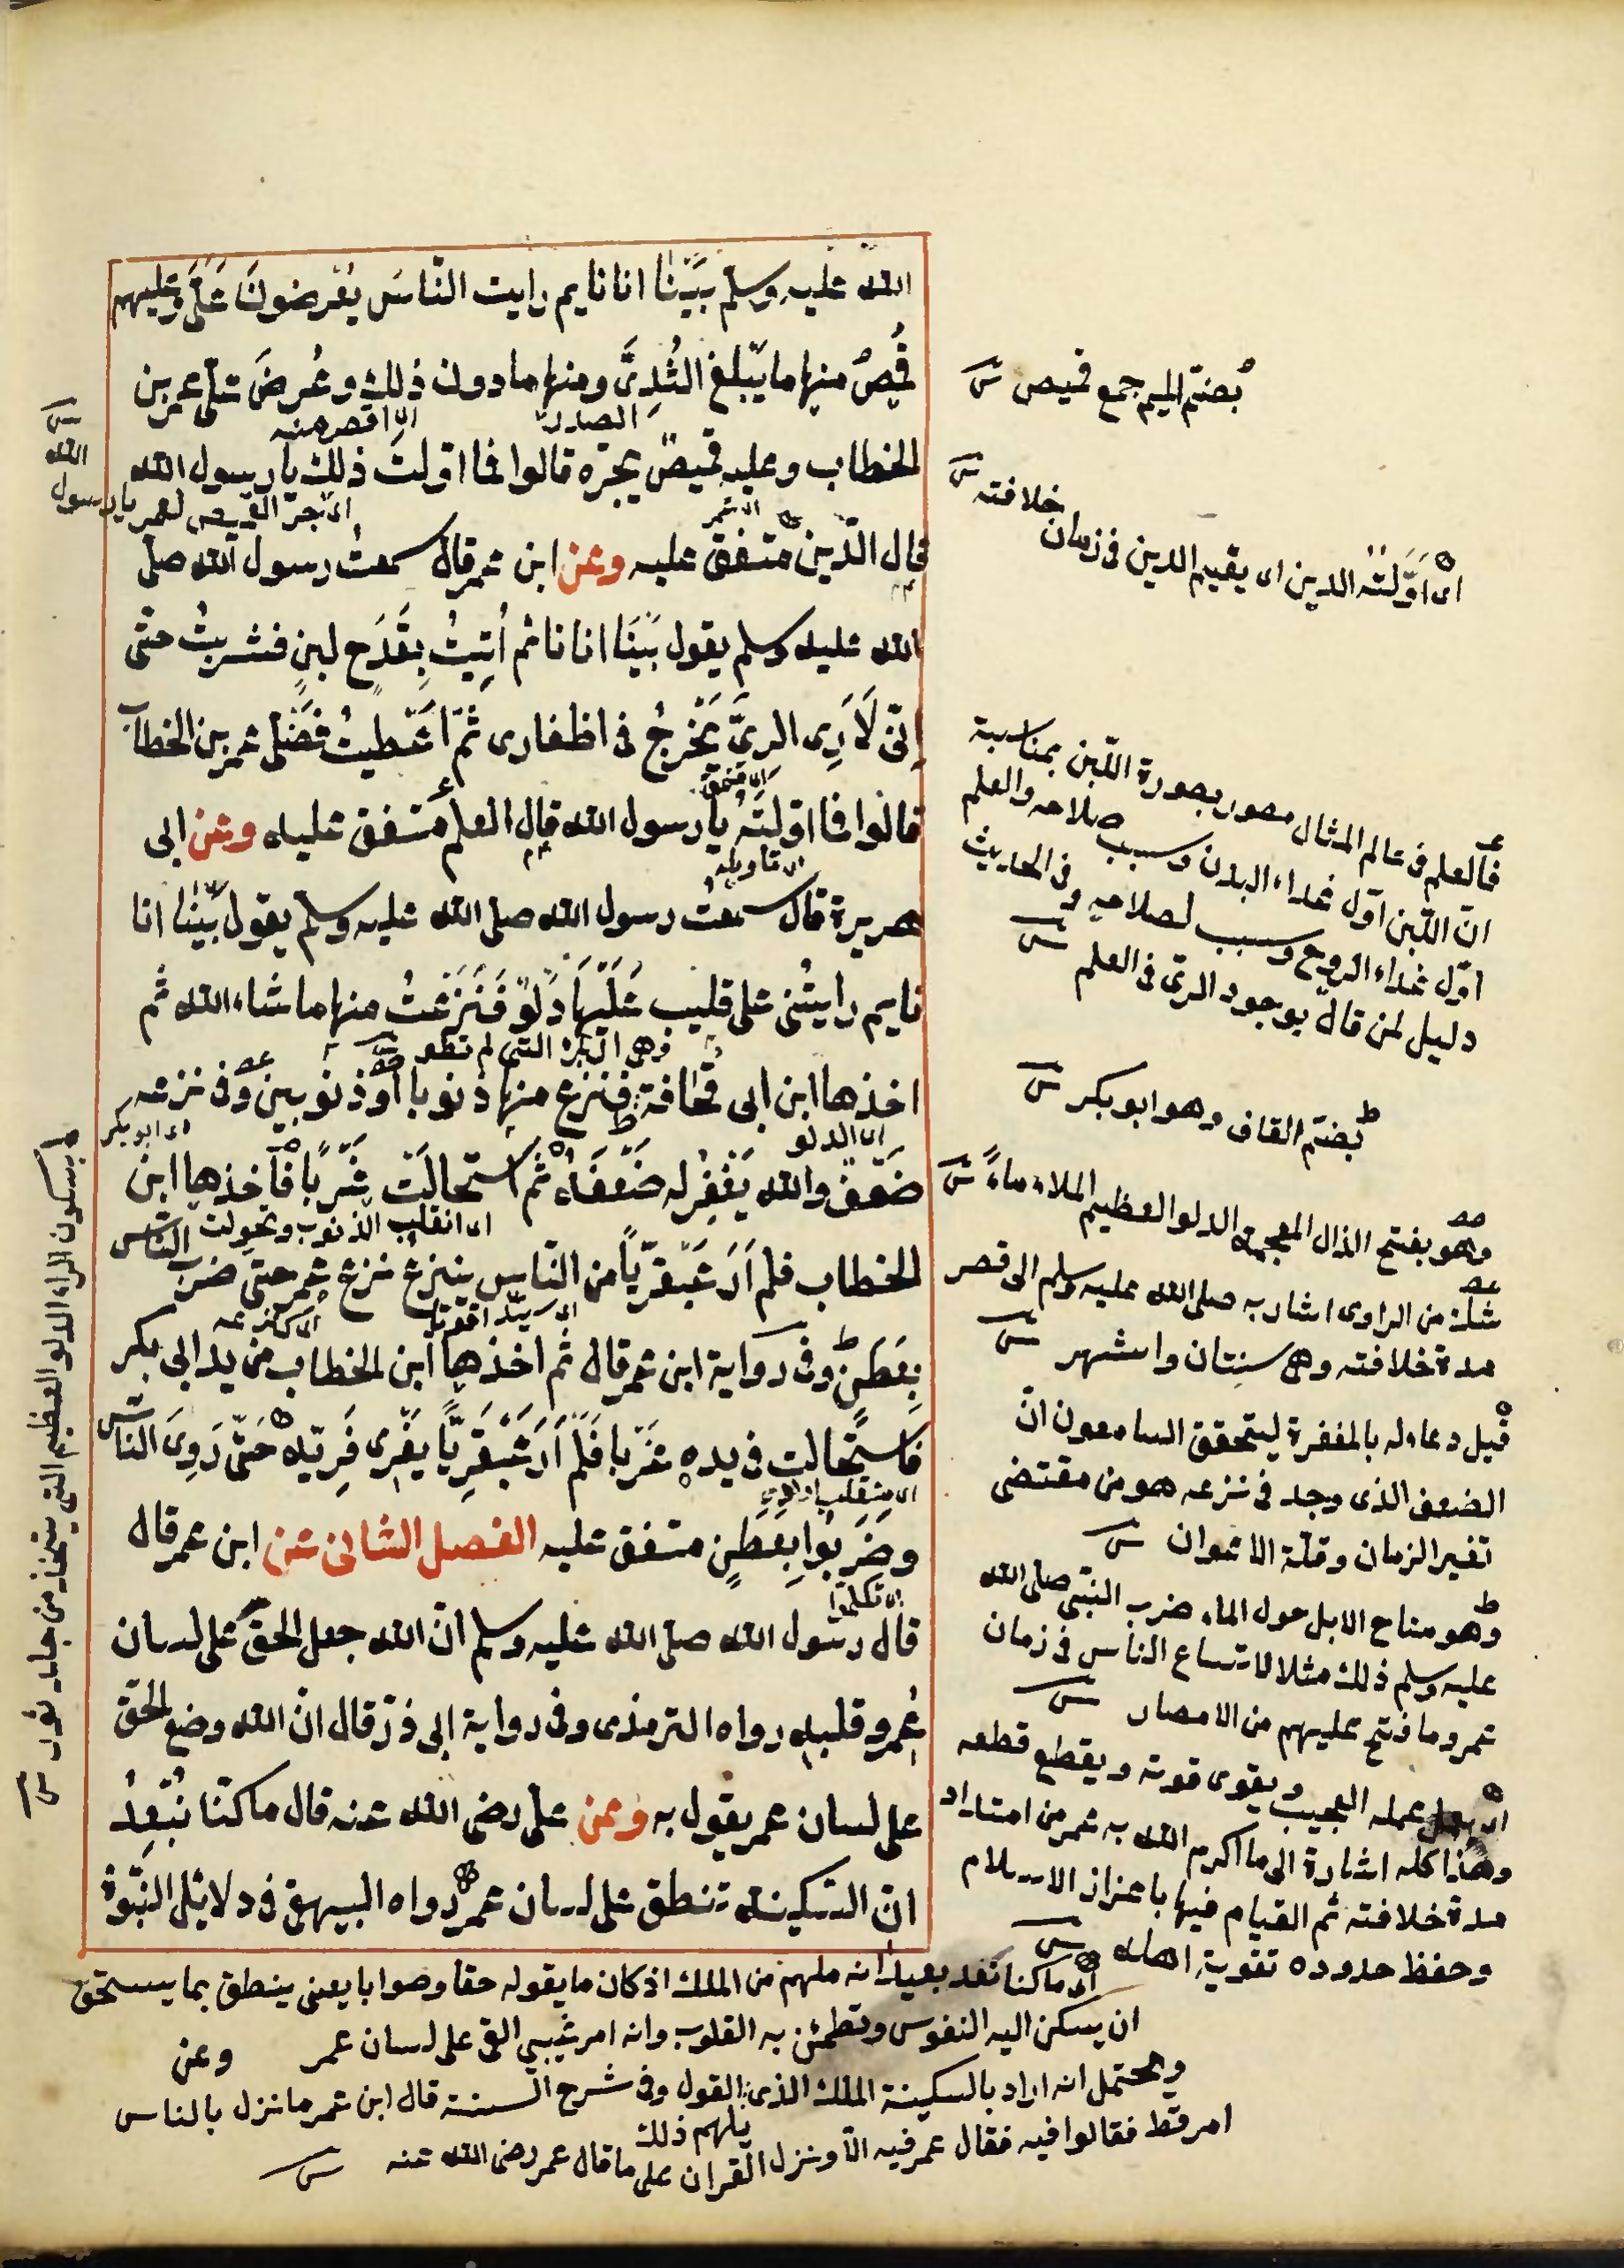 الله عليه وسلم بَيْنَا انا نايم رايت النّاسَ يُعْرضونَ عَلَىَّ وعليهم
قُمُصٌ منها ما يَبْلغ الثُدِىَّ ومنها ما دون ذلك وعُرِضَ علىّ عمر بن
الصدر
اى اقصر منه
الخطاب وعليه قميصٌ يجرّه قالوا فما اوّلتَ ذلك يا رسول الله
اى جرّ القميص لعمر يا رسول
الله
قال الدّينَ متفق عليه وعن ابن عمر قال سمعتُ رسول الله صلى
الله عليه وسلم يقول بَيْنَا انا نائم أُتِيتُ بِقَدَحِ لبنٍ فشربتُ حتّى
اِنّى لَاَرى الرِىَّ يَخْرجُ فى اظفارى ثمّ اَعْطيتُ فَضْلى عمر بن الخطاب
قالوا فما اوّلتَهُ يا رسول الله قال العلم متفق عليه وعن ابى
هريرة قال سمعتُ رسول الله صلى الله عليه وسلم يقول بَيْنا انا
نايم رايتُنى على قليب عَلَيْهَا دَلْوٌ فَنَزَعْتُ منها ما شاء الله ثم
وهى البئر التى لم تطو
اخذها ابن ابى قُحافة فنزع منها ذنوبا أو ذنوبين وفى نزعه
اى ابو بكر
اى الدلو
ضَعْفٌ والله يَغْفِرُ له ضَعْفَهُ ثم استحالَتْ غَرْبًا فأخذها ابن
اى انقلب الذنوب وتحولت
الخطاب فلم اَرَ عَبْقريًّا من النّاس ينزع نزع عمر حتى ضربَ الناس
اى كنزعه
بِعَطَنٍ وفى رواية ابن عمر قال ثم اخذها ابن الخطاب من يد ابى بكر
فاستحالت فى يده غَرْبا فَلَمْ اَرَ عَبْقَرِيًّا يَفْرِى فَرِيّه حَتّى رَوِىَ النّاس
وضَرَبُوا بِعطنٍ متفق عليه الفصل الثانى عن ابن عمر قال
قال رسول الله صلى الله عليه وسلم انّ الله جعل الحقّ على لسان
عُمر وقلبه رواه الترمذى وفى رواية ابى ذرّ قال انّ الله وضع الحقّ
على لسان عمر يقول به وعن على رضى الله عنه قال ما كنّا نُبْعِدُ
انّ السّكينة تنطق على لسان عمر رواه البيهقى فى دلائل النبّوة
وعن
بضمّ الميم جمع قميص
اى اَوَّلتْه الدين اى يقيم الدين فى زمان
خلافته
فالعلم فى عالم المثال مصور بصورة اللّبن بمناسبة
انّ اللّبن اوّل غداء البدن وسبب صلاحه والعلم
اوّل غداء الروح وسبب لصلاحه وفى الحديث
دليل لمن قال بوجود الرىّ فى العلم
بضمّ القاف وهو ابو بكر
وهو بفتح الذال المعجمة الدلو العظيم الملاء ماءً
شك من الراوى اشار به صلى الله عليه وسلم الى قصر
مدة خلافته وهى سنتان واشهر
قيل دعاء له بالمغفرة ليتحقق السامعون انّ
الضعف الذى وجد فى نزعه هو من مقتضى
تغير الزمان وقلّة الاعوان
وهو مناح الابل حول الماء ضرب النبّى صلى الله
عليه وسلم ذلك مثلا لاتساع الناس فى زمان
عمر وما فتح عليهم من الامصار
اى يعمل عمله العجيب ويقوى قوته ويقطع قطعه
وهذا كله اشارة الى ما اكرم الله به عمر من امتداد
مدة خلافته ثم القيام فيها باعزاز الاسلام
وحفظ حدوده تقوية اهله
اى ما كنا نعد بعيدا انه ملهم من الملك اذ كان ما يقوله حقا وصوابا يعنى ينطق بما يستحق
ان يسكن اليه النفوس وتطمئن به القلوب وانه امر غيبى القى على لسان عمر
ويحتمل انه اراد بالسكينة الملك الذى القول وفى شرح السنة قال ابن عمر ما نزل بالناس
يلهم ذلك
امر قط فقالوا فيه فقال عمر فيه الّا ونزل القران على ما قال عمر رضى الله عنه
بسكون الراء الدلو العظيم التى يتخذ من جلد ثور